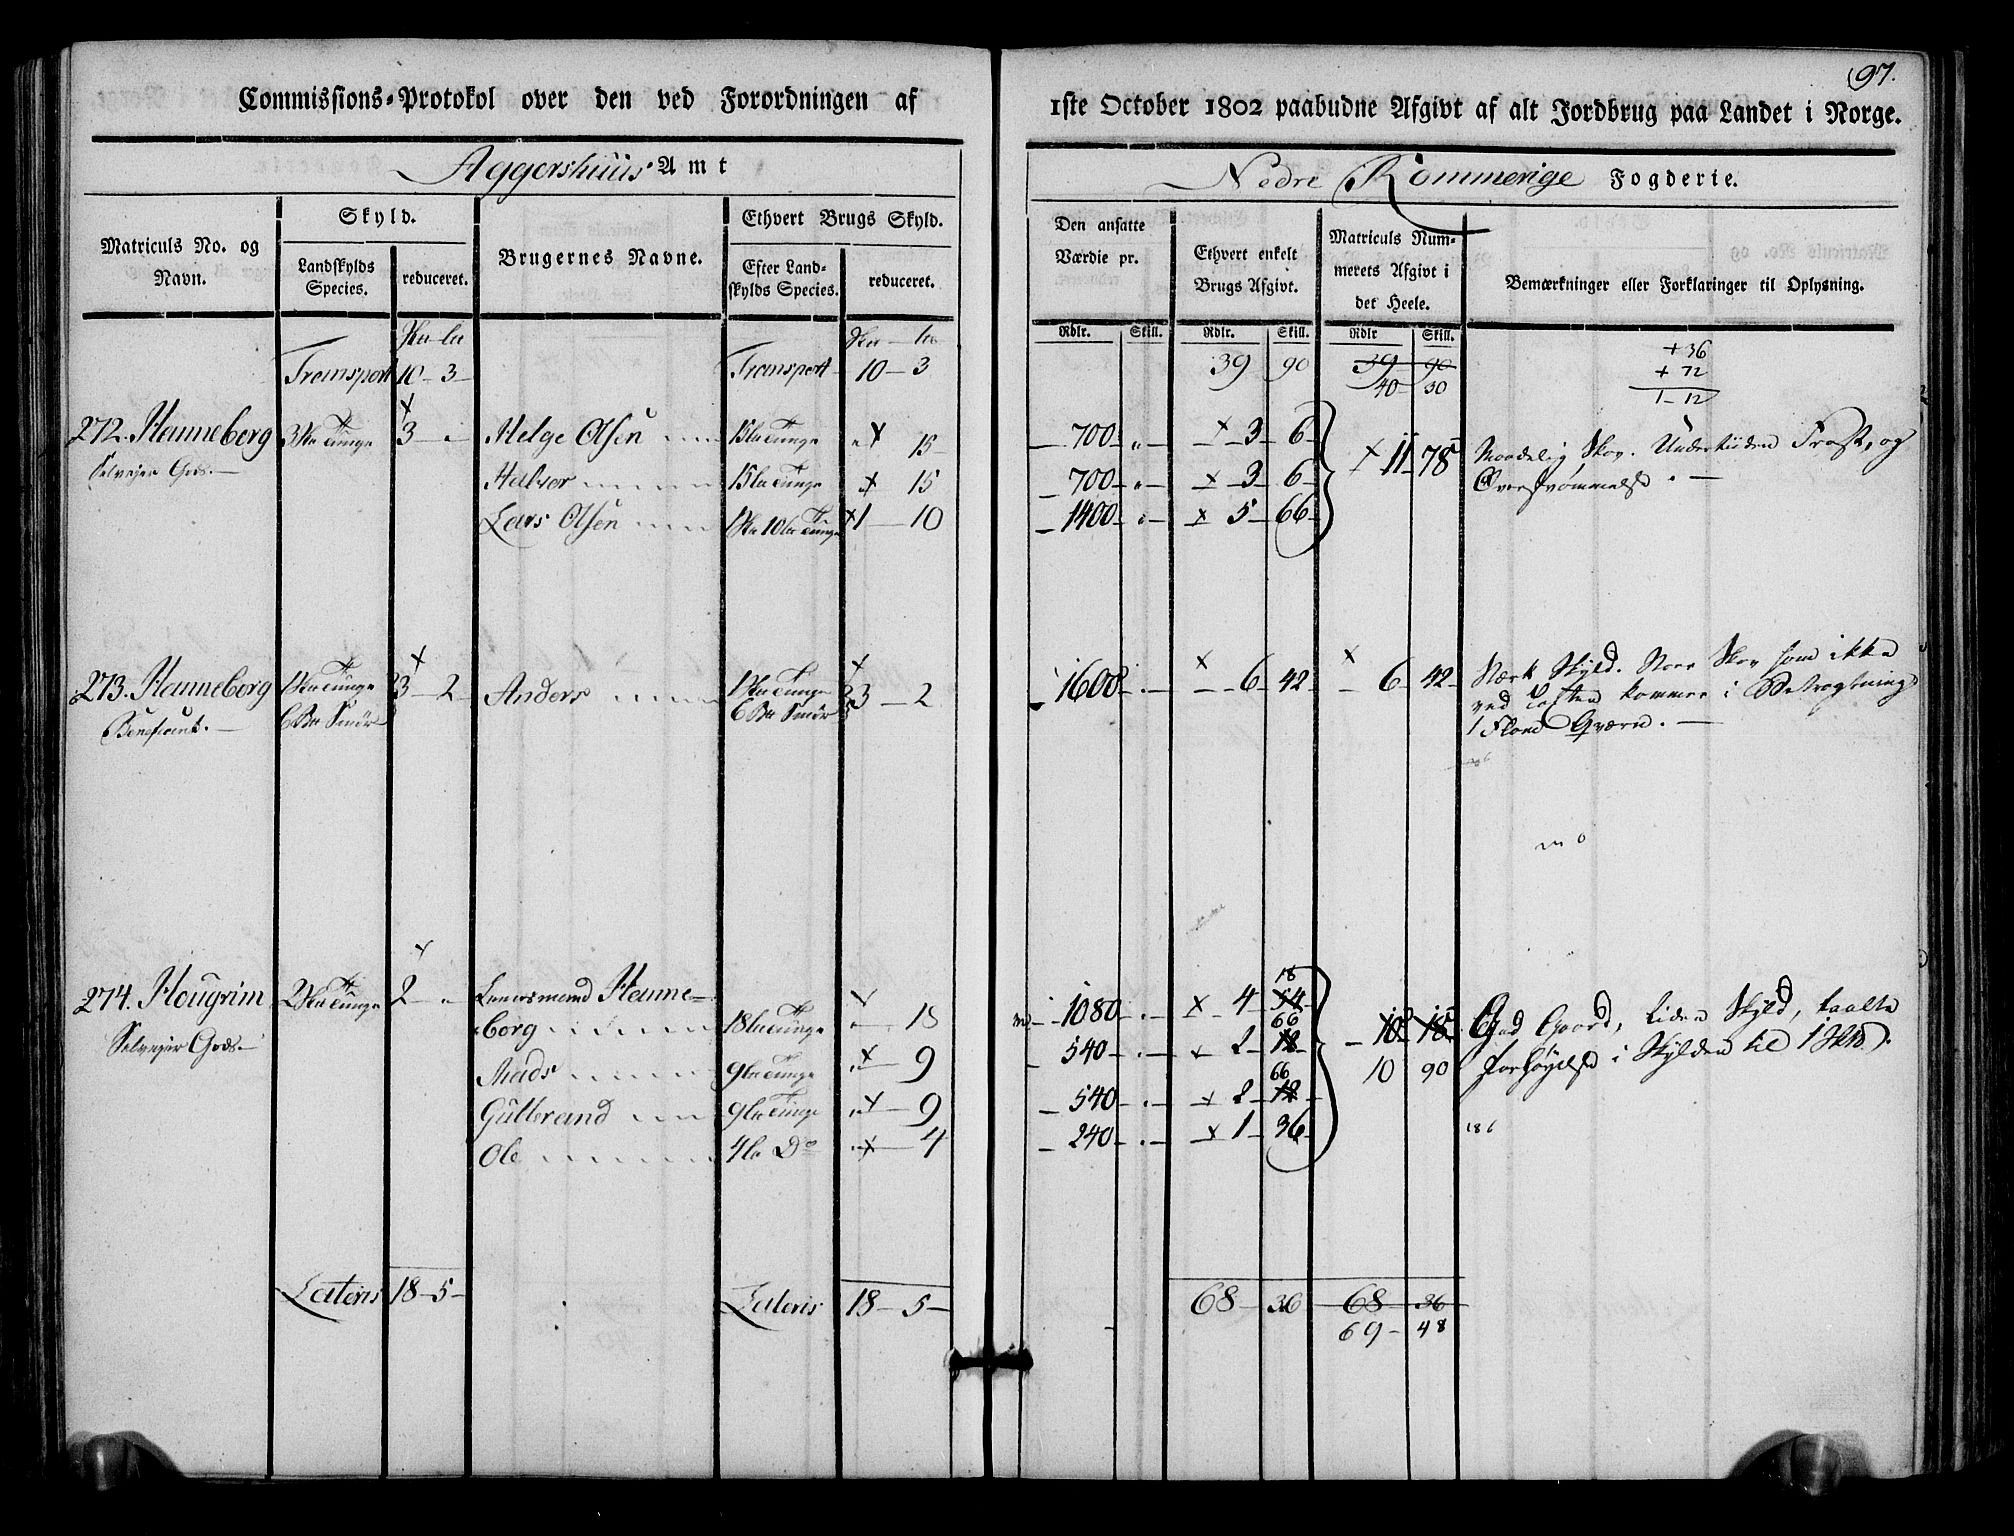 97.
Commissions-Protokol over den ved Forordningen af
1ste October 1802 paabudne Afgivt af alt Jordbrug paa Landet i Norge.
Aggershuus Amt
Nedre Rommerige Fogderie.
Matriculs No. og Navn.
Skyld.
Landskylds Species.
reduceret.
Brugernes Navne.
Ethvert Brugs Skyld.
Efter Landskylds Species.
reduceret.
Den ansatte Værdie pr.
Ethvert enkelt Brugs Afgivt.
Matriculs Nummerets Afgivt i det Heele.
Bemærkninger eller Forklaringer til Oplysning.
Rdlr. Skill. Rdlr. Skill. Rdlr Skill.
Transport 10 - 3 - Transport 10 - 3 39 90 39 90
40 - 30
+ 36
+ 72
1 - 12
272. Hanneborg 3 Tunge 3 Helge Olsen 15 Tunge 15 - 700 - 3 - 6 - 11 - 78
Selveyer Gods. Halvor 15 Tunge 15 - 700 - 3 - 6 -
Lars Olsen 1 10 Tunge 1 - 10 - 1400 - 5 - 66 -
Maadelig Skov. Undertiiden Frost, og
Oversvømmelse. -
273. Hanneborg 1 Tunge 3 - 2 - Anders 1 Tunge 3 - 2 - 1600 - 6 - 42 - 6 - 42 -
Beneficeret. - 6 Smör 6 Smör
Stærk Skyld. Stor Skov som ikke
ved Taxten kommer i Betragtning
1 Flom Qværn. -
274. Hougrim 2 Tunge 2 Lensmand Hanne=
Selveyer Gods - borg 18 Tunge 18 - 1080 - 4 - 54 - 18 - 10 - 18
Mads 9 Tunge 9 - 540 - 2 - 18 - 66 10 90
Gulbrand 9 Tunge 9 - 540 - 2 - 18 - 66
Ole 4 Do 4 - 240 - 1 - 36 -
God Gaard, Liden Skyld, taalte
Forhöyelse i Skylden til 1
186
Lateris 18 - 5 - Lateris 18 - 5 - 68 - 36 - 68 - 36
69 - 48